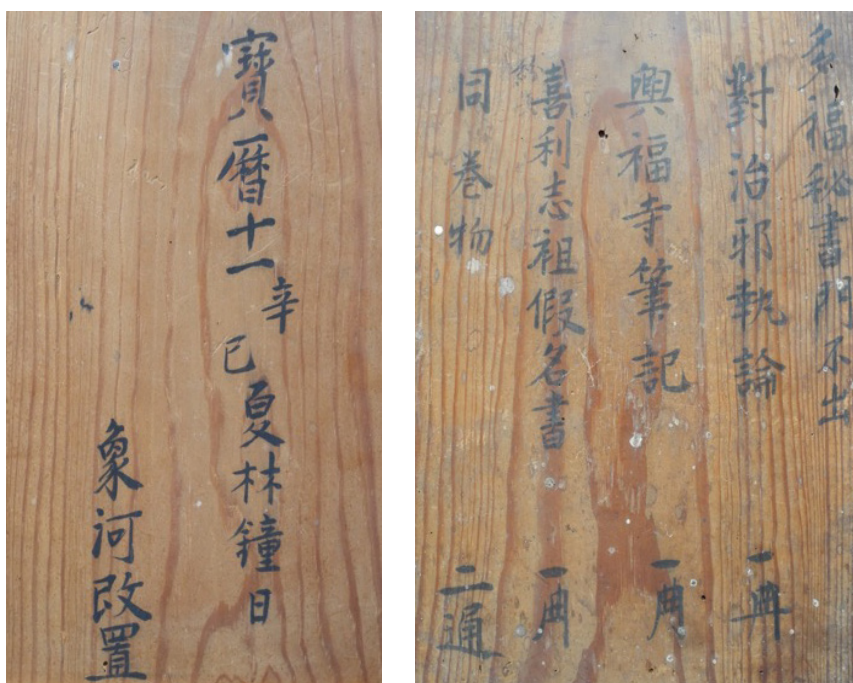 寶暦十一辛巳夏林鐘日
象河改置
多福秘書門不出
對治邪執論 一冊
興福寺筆記 一冊
喜利志祖假名書 一冊
同巻物 二通